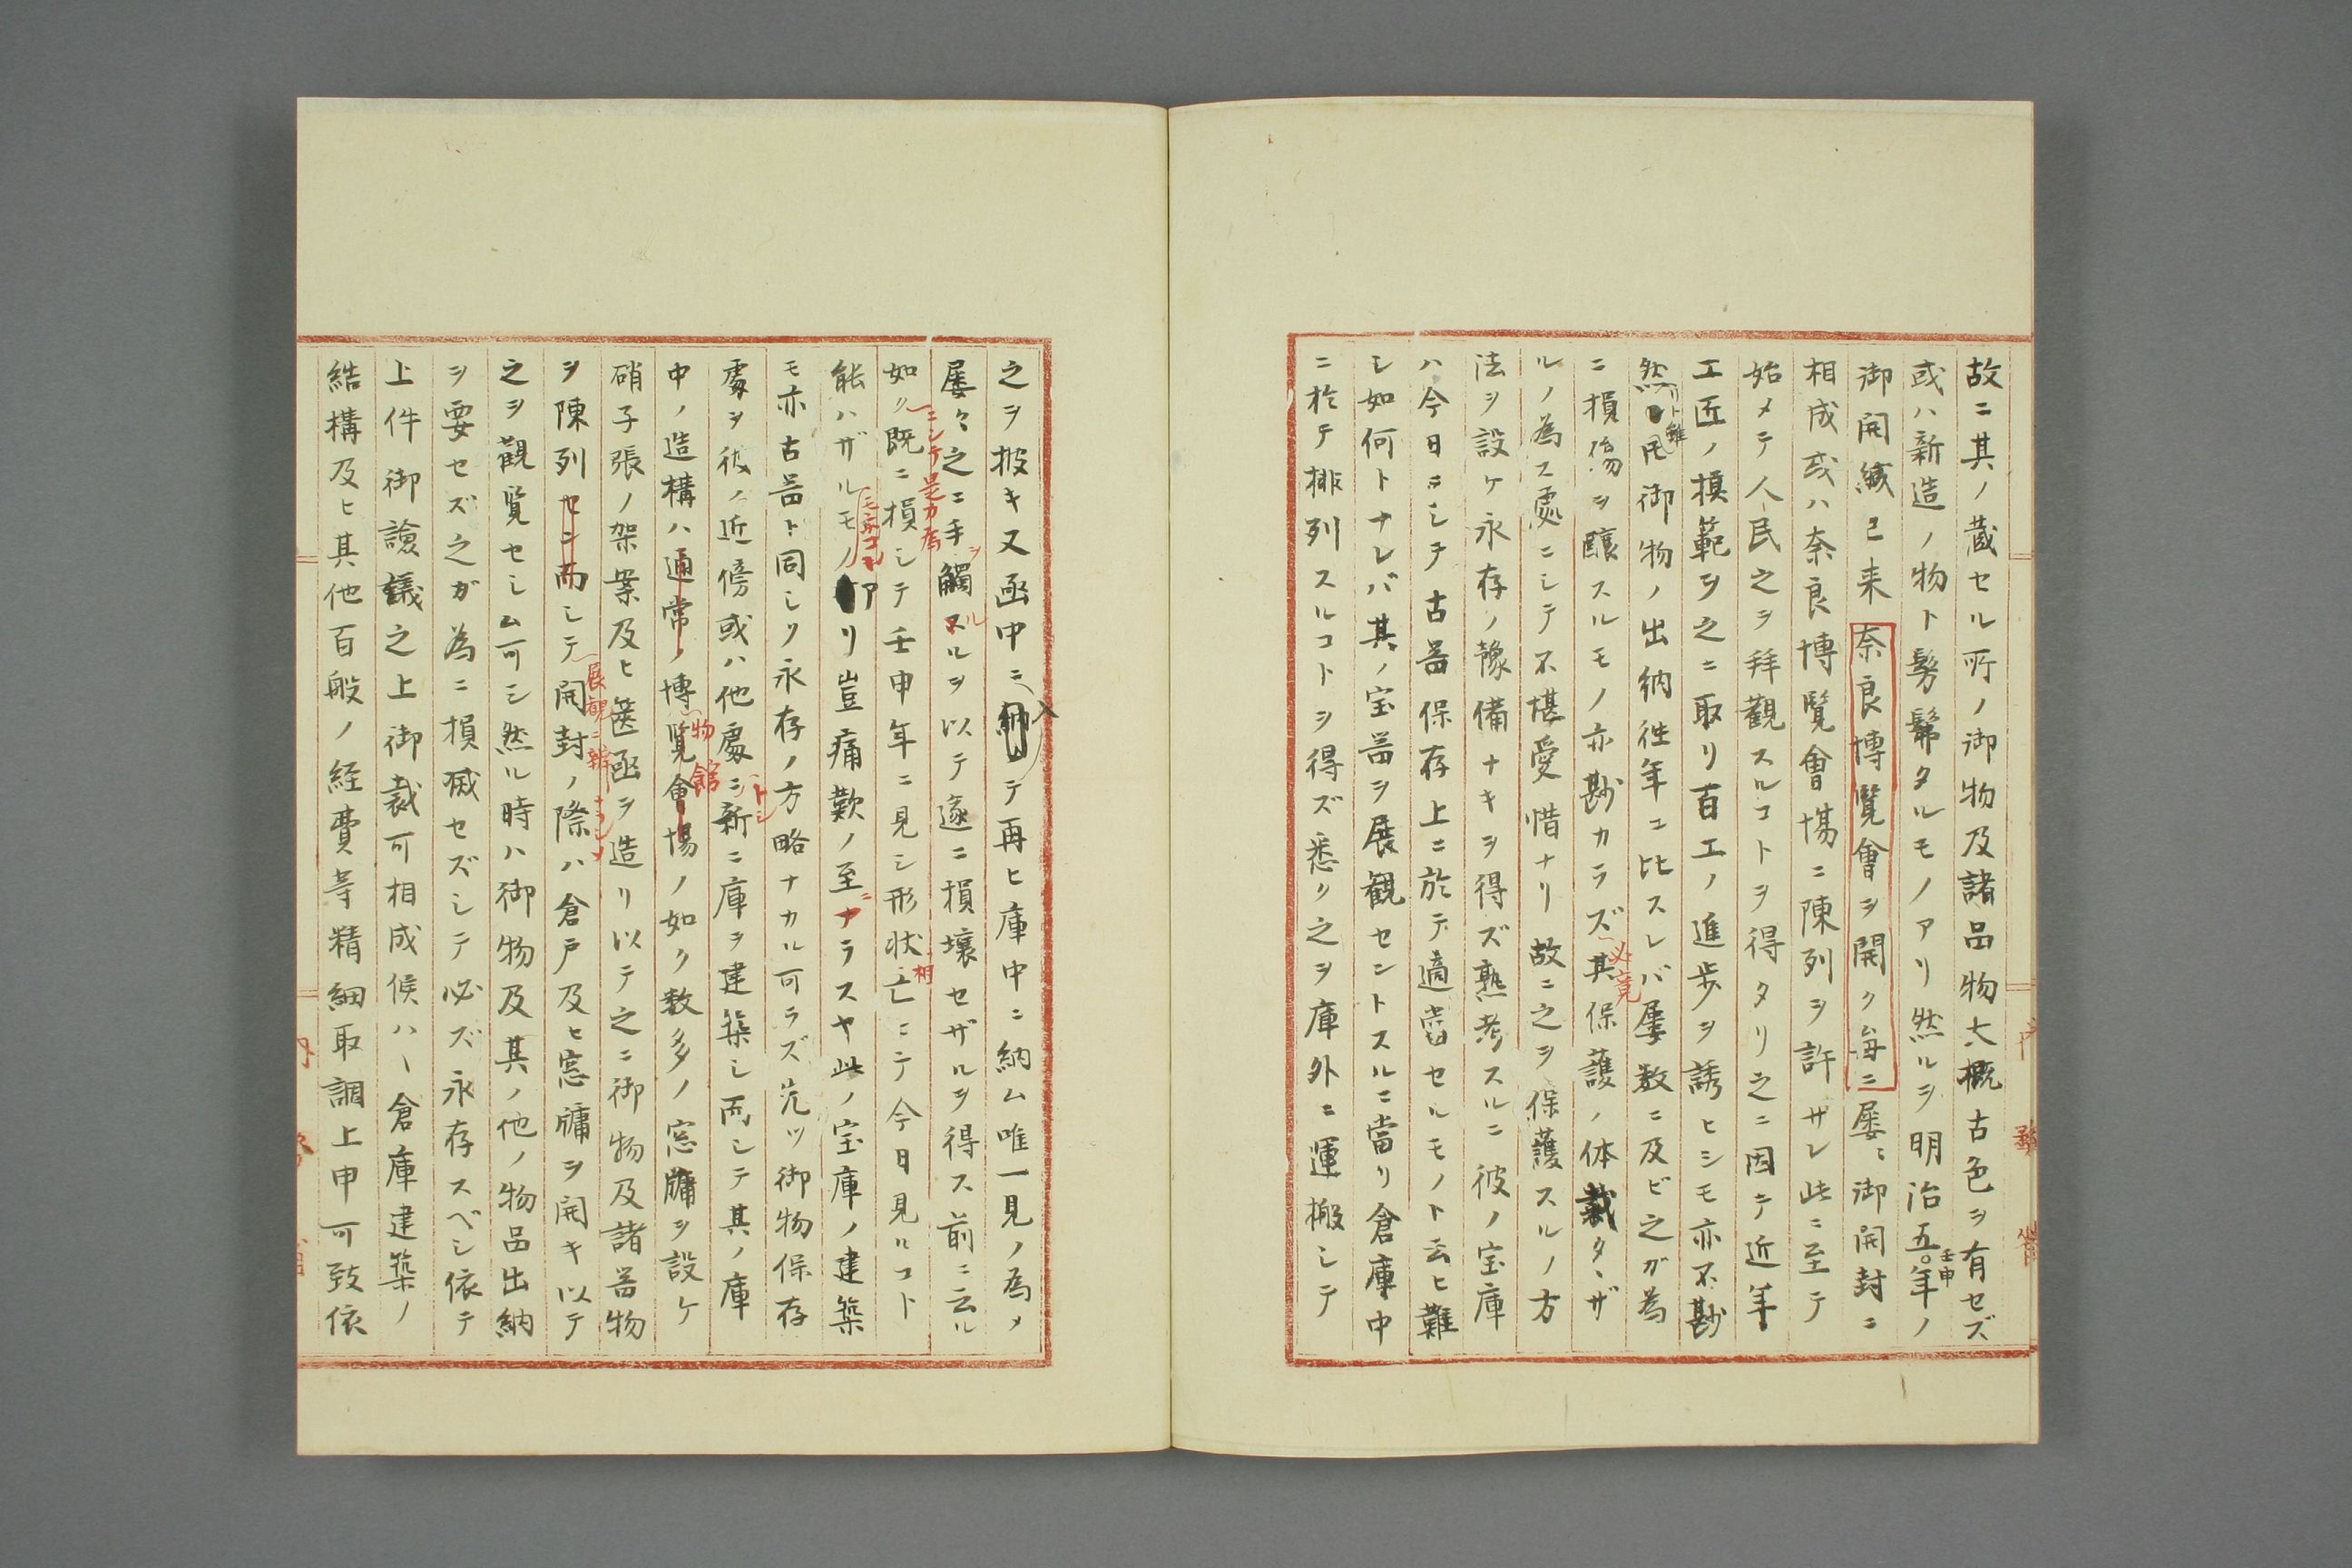 故ニ其ノ蔵セル所ノ御物及諸品物大概古色ヲ有セズ
或ハ新造ノ物ト髣髴タルモノアリ然ルヲ明治五年ノ
壬申
御開緘已来奈良博覧會ヲ開ク毎ニ屡〻御開封ニ
相成或ハ奈良博覧會場ニ陳列ヲ許サレ此ニ至テ
始メテ人民之ヲ拜觀スルコトヲ得タリ之ニ因テ近年
工匠ノ摸範ヲ之ニ取リ百工ノ進歩ヲ誘ヒシモ亦不尠
然リト雖モ御物ノ出納往年ニ比スレバ屡数ニ及ビ之ガ為
ニ損傷ヲ釀スルモノ亦尠カラズ其保護ノ体裁タヽザ
必竟
ルノ為ス處ニシテ不堪愛惜ナリ故ニ之ヲ保護スルノ方
法ヲ設ケ永存ノ豫備ナキヲ得ズ熟考スルニ彼ノ宝庫
ハ今日ニシテ古器保存上ニ於テ適當セルモノト云ヒ難
シ如何トナレバ其ノ宝器ヲ展観セントスルニ當リ倉庫中
ニ於テ排列スルコトヲ得ズ悉ク之ヲ庫外ニ運搬シテ
之ヲ披キ又函中ニ納テ再ヒ庫中ニ納ム唯一見ノ為メ
入
屡々之ニ手觸スルヲ以テ遂ニ損壊セザルヲ得ス前ニ云ル
ヲ
ル
如ク既ニ損シテ壬申年ニ見シ形状亡ニテ今日見ルコト
ニシテ是カ為
相
能ハザルモノアリ豈痛歎ノ至ナラスヤ此ノ宝庫ノ建築
ニ
モ亦古器ト同シク永存ノ方略ナカル可ラズ先ツ御物保存
處ヲ彼ノ近傍或ハ他處ニ新ニ庫ヲ建築シ而シテ其ノ庫
中ノ造構ハ通常ノ博覧會場ノ如ク数多ノ窓牗ヲ設ケ
物
館
硝子張ノ架案及ヒ篋函ヲ造リ以テ之ニ御物及諸器物
ヲ陳列セン而シテ開封ノ際ハ倉戸及ヒ窓牗ヲ開キ以テ
之ヲ觀覧セシム可シ然ル時ハ御物及其ノ他ノ物品出納
ヲ要セズ之ガ為ニ損滅セズシテ必ズ永存スベシ依テ
上件御詮議之上御裁可相成候ハヽ倉庫建築ノ
結構及ヒ其他百般ノ経費等精細取調上申可致依